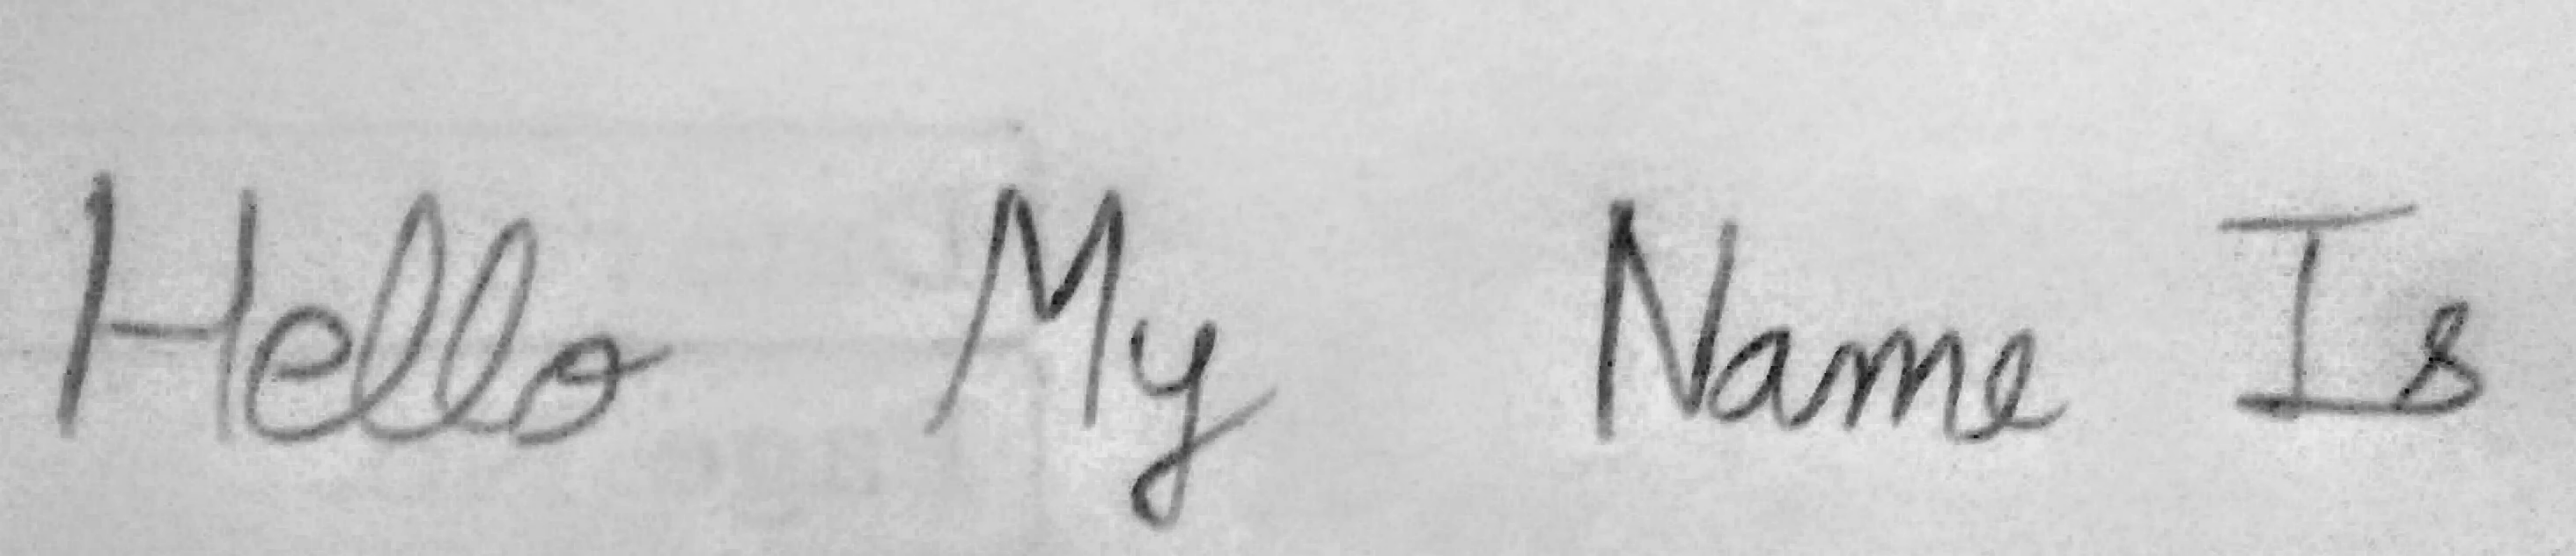 Hello My Name Is